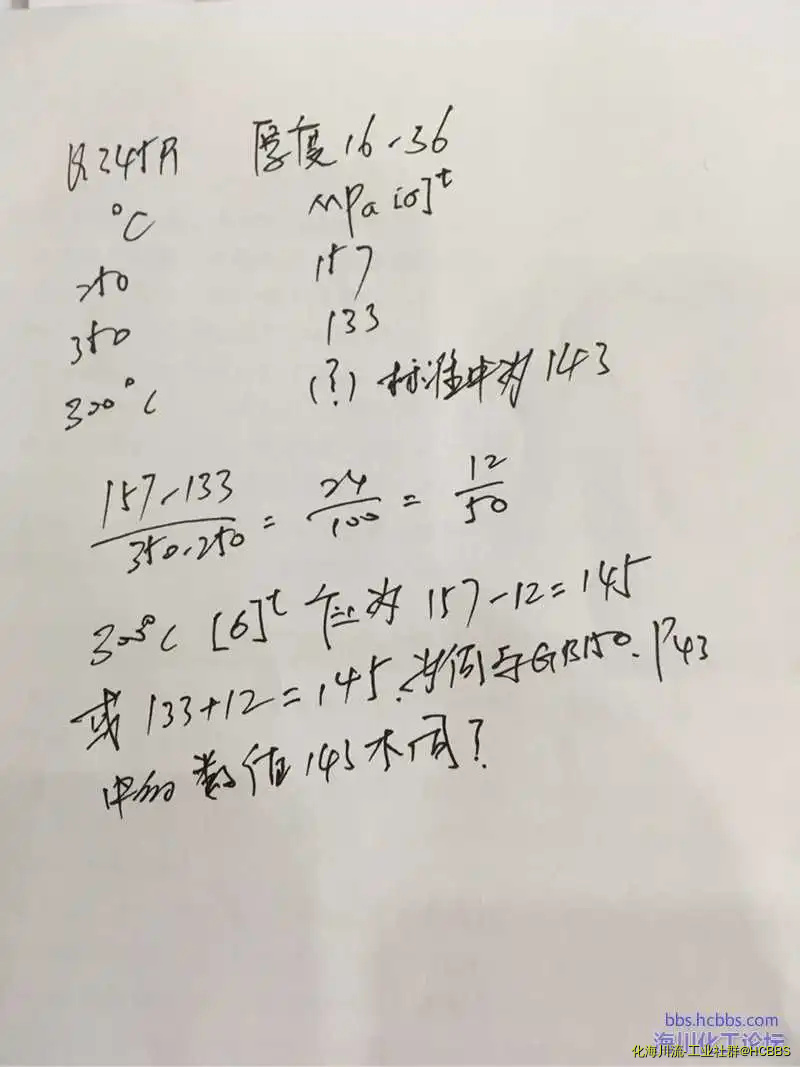 Q245R 厚度16-36
°C MPa [σ]t
250 157
350 133
300°C (?) 标准中为143
157-133 / 350-250 = 24/100 = 12/50
300°C [σ]t 应为 157-12=145
或 133+12=145.为何与GB150.P43
中的数值143不同?
bbs.hcbbs.com
海川化工论坛
化海川流-工业社群@HCBBS